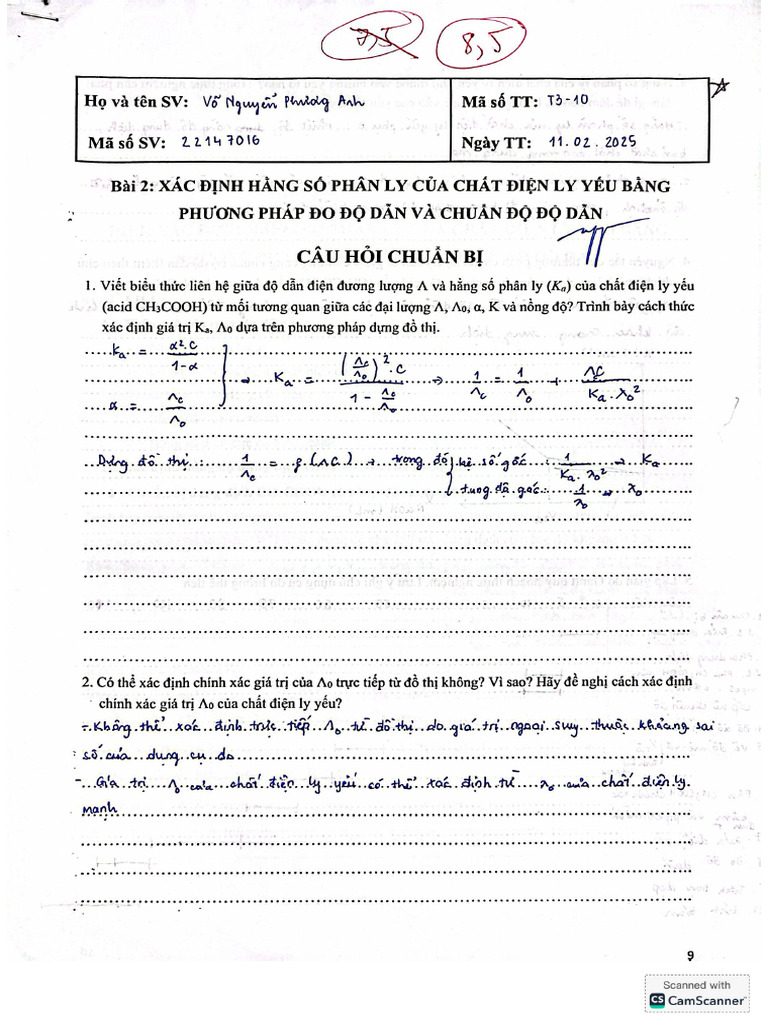 7,5 8,5
Họ và tên SV: Võ Nguyễn Phương Anh
Mã số TT: T3-10
Mã số SV: 22147016
Ngày TT: 11.02.2025
Bài 2: XÁC ĐỊNH HẰNG SỐ PHÂN LY CỦA CHẤT ĐIỆN LY YẾU BẰNG
PHƯƠNG PHÁP ĐO ĐỘ DẪN VÀ CHUẨN ĐỘ ĐỘ DẪN
CÂU HỎI CHUẨN BỊ
1. Viết biểu thức liên hệ giữa độ dẫn điện đương lượng Λ và hằng số phân ly (Kₐ) của chất điện ly yếu
(acid CH₃COOH) từ mối tương quan giữa các đại lượng Λ, Λ₀, α, K và nồng độ? Trình bày cách thức
xác định giá trị Kₐ, Λ₀ dựa trên phương pháp dựng đồ thị.
Kₐ = α².C / (1-α)
α = Λc / Λ₀
→ Kₐ = (Λc/Λ₀)².C / (1 - Λc/Λ₀) → 1/Λc = 1/Λ₀ + ΛC / (Kₐ.λ₀²)
Dựng đồ thị : 1/Λc = f(ΛC) → trong đó hệ số góc : 1/(Kₐ.λ₀²) → Kₐ
tung độ gốc : 1/λ₀ → λ₀
2. Có thể xác định chính xác giá trị của Λ₀ trực tiếp từ đồ thị không? Vì sao? Hãy đề nghị cách xác định
chính xác giá trị Λ₀ của chất điện ly yếu?
- Không thể xác định trực tiếp Λ₀ từ đồ thị do giá trị ngoại suy thuộc khoảng sai
số của dụng cụ đo
- Giá trị Λ₀ của chất điện ly yếu có thể xác định từ λ₀ của chất điện ly
mạnh
9
Scanned with
CS CamScanner